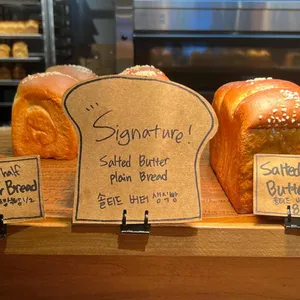 Signature!
Salted Butter
Plain Bread
솔티드 버터 생식빵
half
Bread
1/2
Salted
Butter
솔티드